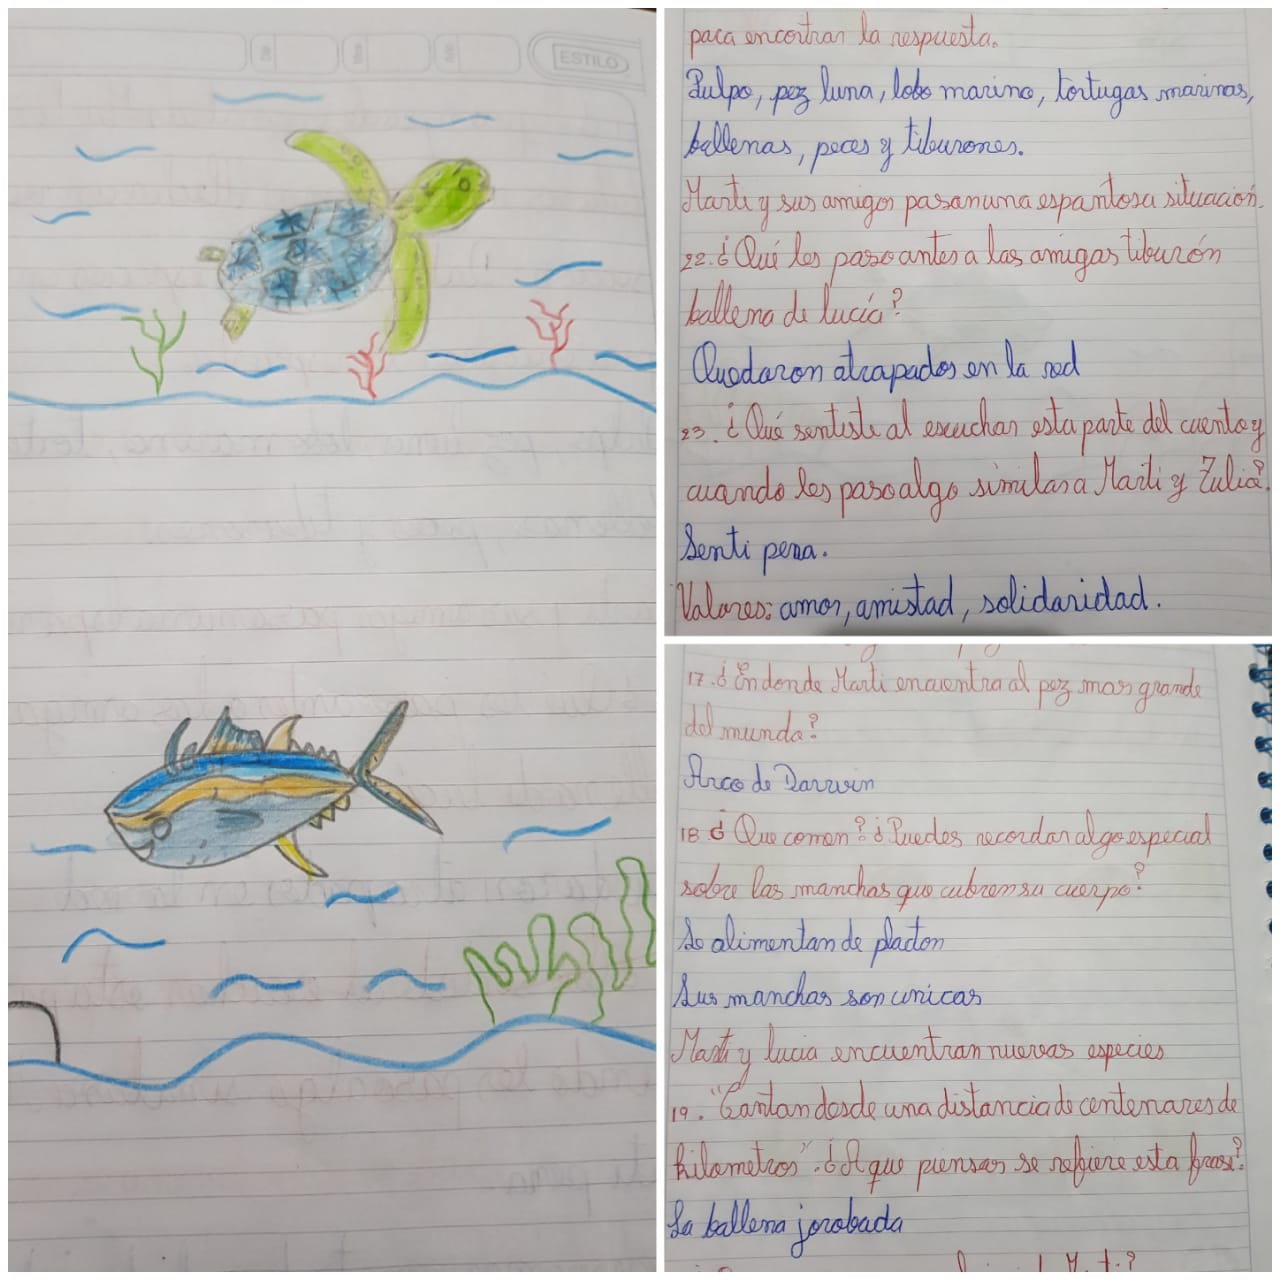 ESTILO
para encontrar la respuesta.
Pulpo, pez luna, lobo marino, tortugas marinas,
ballenas, peces y tiburones.
Marti y sus amigos pasan una espantosa situación.
22. ¿Qué les paso antes a las amigas tiburón
ballena de lucía?
Quedaron atrapados en la red
23. ¿Qué sentiste al escuchar esta parte del cuento y
cuando les paso algo similar a Marti y Zulia?
Senti pena.
Valores: amor, amistad, solidaridad.
17. ¿En donde Marti encuentra al pez mas grande
del mundo?
Arco de Darwin
18 ¿Que comen? ¿Puedes recordar algo especial
sobre las manchas que cubren su cuerpo?
Se alimentan de placton
Sus manchas son unicas
Marti y lucia encuentran nuevas especies
19. "Cantan desde una distancia de centenares de
kilometros". ¿A que piensas se refiere esta frase?
La ballena jorobada